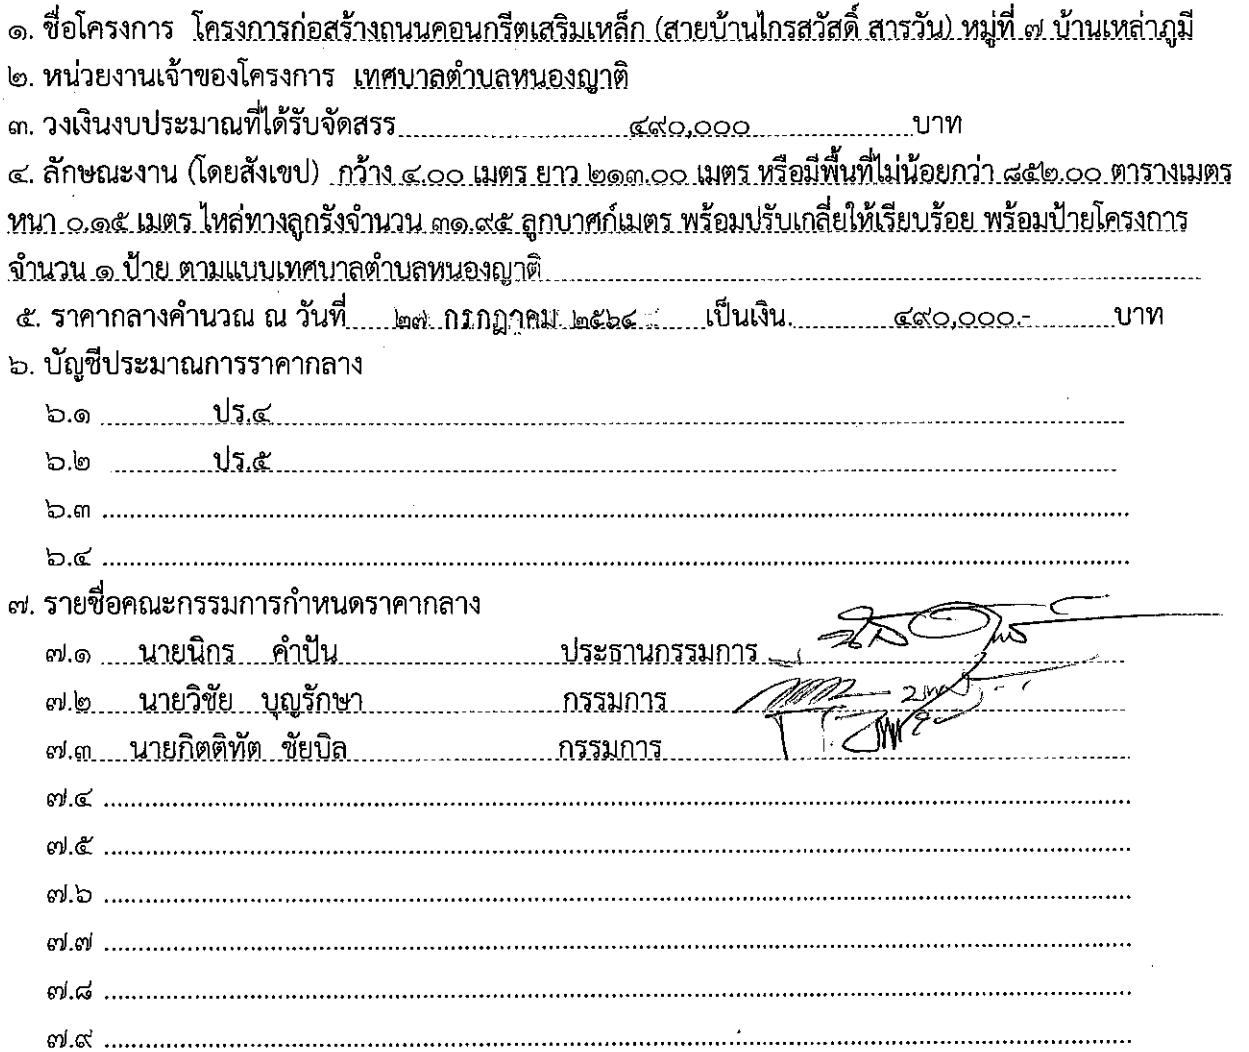 ๑. ชื่อโครงการ โครงการก่อสร้างถนนคอนกรีตเสริมเหล็ก (สายบ้านไกรสวัสดิ์ สารวัน) หมู่ที่ ๗ บ้านเหล่าภูมี
๒. หน่วยงานเจ้าของโครงการ เทศบาลตำบลหนองญาติ
๓. วงเงินงบประมาณที่ได้รับจัดสรร ๔๙๐,๐๐๐ บาท
๔. ลักษณะงาน (โดยสังเขป) กว้าง ๔.๐๐ เมตร ยาว ๒๑๓.๐๐ เมตร หรือมีพื้นที่ไม่น้อยกว่า ๘๕๒.๐๐ ตารางเมตร
หนา ๐.๑๕ เมตร ไหล่ทางลูกรังจำนวน ๓๑.๙๕ ลูกบาศก์เมตร พร้อมปรับเกลี่ยให้เรียบร้อย พร้อมป้ายโครงการ
จำนวน ๑ ป้าย ตามแบบเทศบาลตำบลหนองญาติ
๕. ราคากลางคำนวณ ณ วันที่ ๒๗ กรกฎาคม ๒๕๖๔ เป็นเงิน ๔๙๐,๐๐๐.- บาท
๖. บัญชีประมาณการราคากลาง
๖.๑ ปร.๔
๖.๒ ปร.๕
๖.๓
๖.๔
๗. รายชื่อคณะกรรมการกำหนดราคากลาง
๗.๑ นายนิกร คำปัน ประธานกรรมการ
๗.๒ นายวิชัย บุญรักษา กรรมการ
๗.๓ นายกิตติทัต ชัยบิล กรรมการ
๗.๔
๗.๕
๗.๖
๗.๗
๗.๘
๗.๙